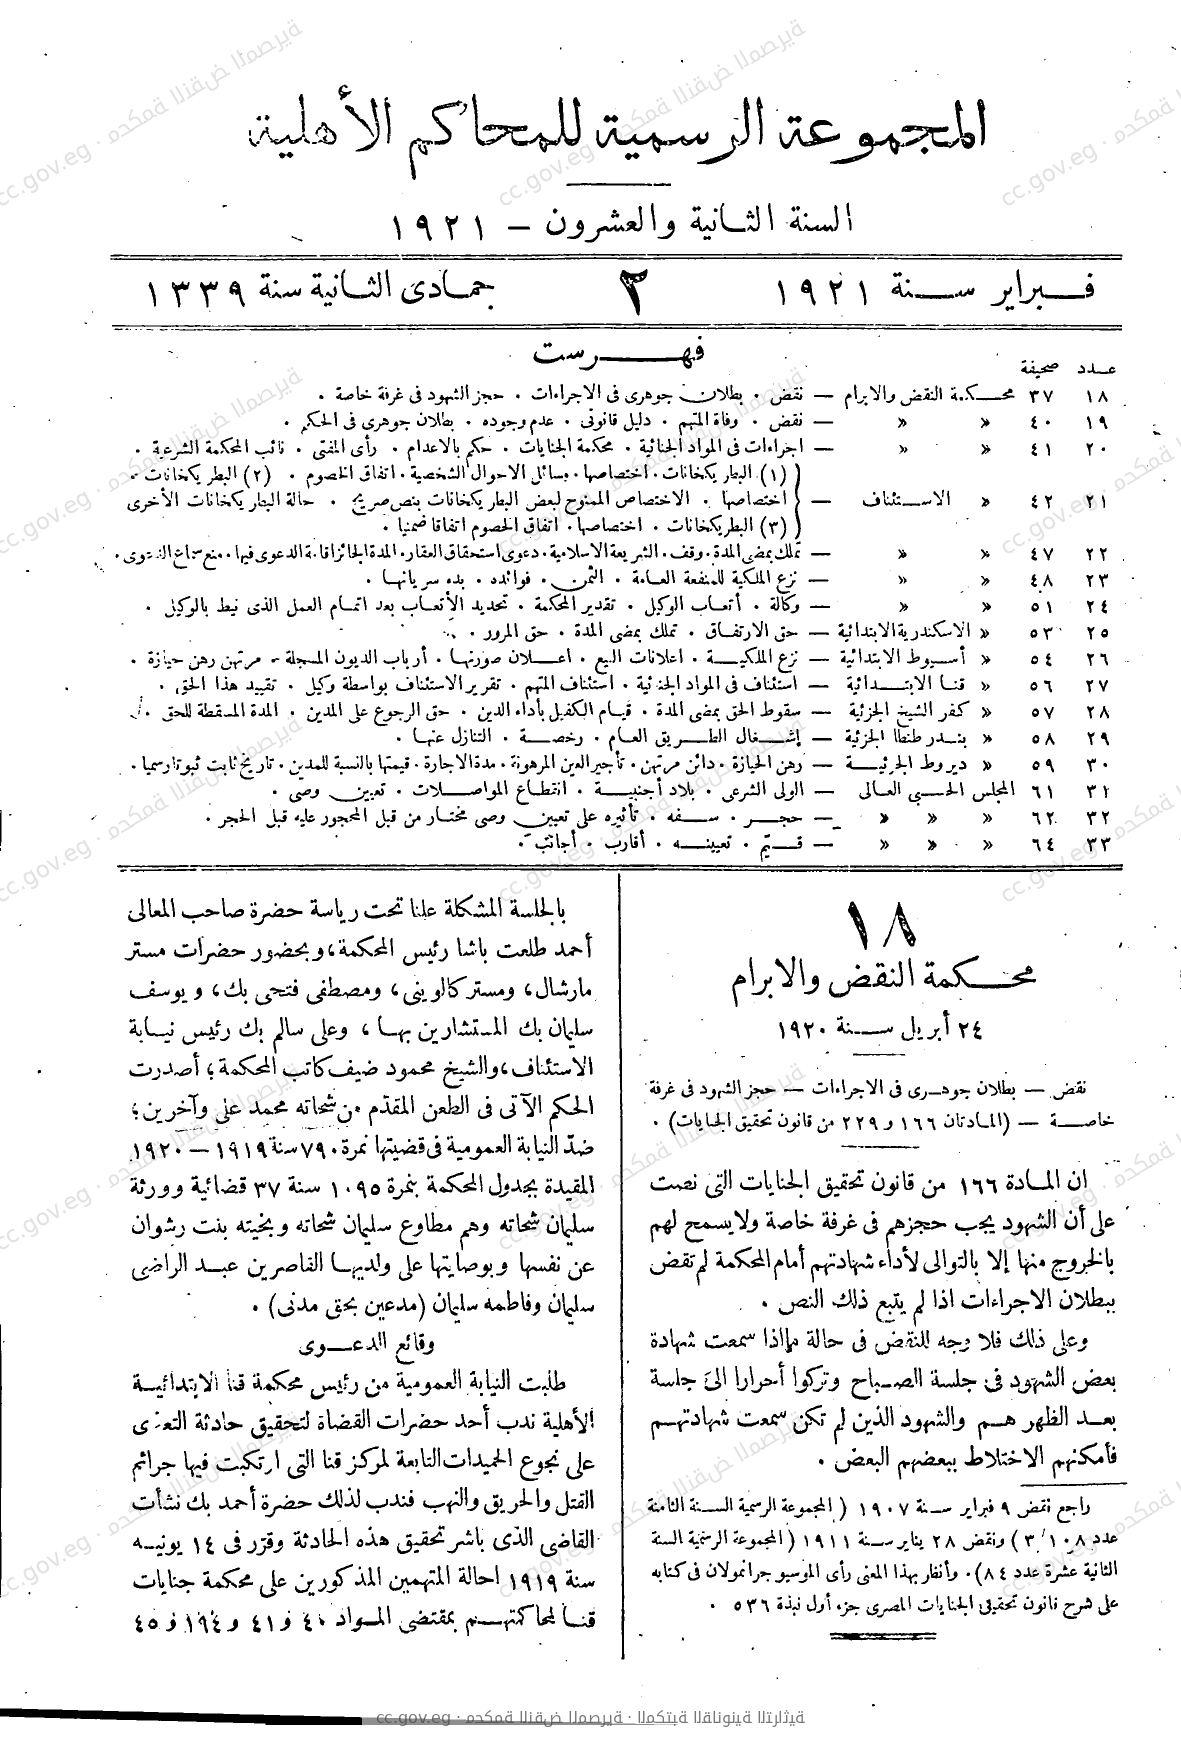 المجموعة الرسمية للمحاكم الأهلية
السنة الثانية والعشرون – ١٩٢١
فبراير سنة ١٩٢١
٢
جمادى الثانية سنة ١٣٣٩
فهرست
عدد صحيفة
١٨ ٣٧ محكمة النقض والابرام — نقض . بطلان جوهرى فى الاجراءات . حجز الشهود فى غرفة خاصة .
١٩ ٤٠ » » — نقض . وفاة المتهم . دليل قانونى . عدم وجوده . بطلان جوهرى فى الحكم .
٢٠ ٤١ » » — اجراءات فى المواد الجنائية . محكمة الجنايات . حكم بالاعدام . رأى المفتى . نائب المحكمة الشرعية .
(١) البطريكخانات . اختصاصها . مسائل الاحوال الشخصية . اتفاق الخصوم . (٢) البطريكخانات .
٢١ ٤٢ » الاستئناف — اختصاصها . الاختصاص الممنوح لبعض البطريكخانات بنص صريح . حالة البطريكخانات الأخرى
(٣) البطريكخانات . اختصاصها . اتفاق الخصوم اتفاقا ضمنيا .
٢٢ ٤٧ » » — تملك بمضى المدة . وقف . الشريعة الاسلامية . دعوى استحقاق العقار . المدة الجائز اقامة الدعوى فيها . منع سماع الدعوى .
٢٣ ٤٨ » » — نزع الملكية للمنفعة العامة . الثمن . فوائده . بدء سريانها .
٢٤ ٥١ » » — وكالة . أتعاب الوكيل . تقدير المحكمة . تحديد الأتعاب بعد اتمام العمل الذى نيط بالوكيل .
٢٥ ٥٣ » الاسكندرية الابتدائية — حق الارتفاق . تملك بمضى المدة . حق المرور .
٢٦ ٥٤ » أسيوط الابتدائية — نزع الملكية . اعلانات البيع . اعلان صورتها . أرباب الديون المسجلة . مرتهن رهن حيازة .
٢٧ ٥٦ » قنا الابتدائية — استئناف فى المواد الجنائية . استئناف المتهم . تقرير الاستئناف بواسطة وكيل . تقييد هذا الحق .
٢٨ ٥٧ » كفر الشيخ الجزئية — سقوط الحق بمضى المدة . قيام الكفيل بأداء الدين . حق الرجوع على المدين . المدة المسقطة للحق .
٢٩ ٥٨ » بندر طنطا الجزئية — إشغال الطريق العام . رخصة . التنازل عنها .
٣٠ ٥٩ » ديروط الجزئية — رهن الحيازة . دائن مرتهن . تأجير العين المرهونة . مدة الاجارة . قيمتها بالنسبة للمدين . تاريخ ثابت ثبوتا رسميا .
٣١ ٦١ المجلس الحسبى العالى — الولى الشرعى . بلاد أجنبية . انقطاع المواصلات . تعيين وصى .
٣٢ ٦٢ » » » — حجر . سفه . تأثيره على تعيين وصى مختار من قبل المحجور عليه قبل الحجر .
٣٣ ٦٤ » » » — قيم . تعيينه . أقارب . أجانب .
١٨
محكمة النقض والابرام
٢٤ أبريل سنة ١٩٢٠
نقض — بطلان جوهرى فى الاجراءات — حجز الشهود فى غرفة
خاصة — (المادتان ١٦٦ و ٢٢٩ من قانون تحقيق الجنايات) .
ان المادة ١٦٦ من قانون تحقيق الجنايات التى نصت
على أن الشهود يجب حجزهم فى غرفة خاصة ولا يسمح لهم
بالخروج منها إلا بالتوالى لأداء شهادتهم أمام المحكمة لم تقض
ببطلان الاجراءات اذا لم يتبع ذلك النص .
وعلى ذلك فلا وجه للنقض فى حالة ما اذا سمعت شهادة
بعض الشهود فى جلسة الصباح وتركوا أحرارا الى جلسة
بعد الظهر هم والشهود الذين لم تكن سمعت شهادتهم
فأمكنهم الاختلاط ببعضهم البعض .
راجع نقض ٩ فبراير سنة ١٩٠٧ (المجموعة الرسمية السنة الثامنة
عدد ١٠٨/٣) ونقض ٢٨ يناير سنة ١٩١١ (المجموعة الرسمية السنة
الثانية عشرة عدد ٨٤) . وأنظر بهذا المعنى رأى الموسيو جرانمولان فى كتابه
على شرح قانون تحقيق الجنايات المصرى جزء أول نبذة ٥٣٦ .
بالجلسة المشكلة علنا تحت رياسة حضرة صاحب المعالى
أحمد طلعت باشا رئيس المحكمة، وبحضور حضرات مستر
مارشال، ومستر كالوينى، ومصطفى فتحى بك، ويوسف
سليمان بك المستشارين بها، وعلى سالم بك رئيس نيابة
الاستئناف، والشيخ محمود ضيف كاتب المحكمة؛ أصدرت
الحكم الآتى فى الطعن المقدم من شحاته محمد على وآخرين؛
ضد النيابة العمومية فى قضيتها نمرة ٧٩٠ سنة ١٩١٩ – ١٩٢٠
المقيدة بجدول المحكمة بنمرة ١٠٩٥ سنة ٣٧ قضائية وورثة
سليمان شحاته وهم مطاوع سليمان شحاته وبخيته بنت رشوان
عن نفسها وبوصايتها على ولديها القاصرين عبد الراضى
سليمان وفاطمه سليمان (مدعين بحق مدنى) .
وقائع الدعوى
طلبت النيابة العمومية من رئيس محكمة قنا الابتدائية
الأهلية ندب أحد حضرات القضاة لتحقيق حادثة التعدى
على نجوع الحميدات التابعة لمركز قنا التى ارتكبت فيها جرائم
القتل والحريق والنهب فندب لذلك حضرة أحمد بك نشأت
القاضى الذى باشر تحقيق هذه الحادثة وقرر فى ١٤ يونيه
سنة ١٩١٩ احالة المتهمين المذكورين على محكمة جنايات
قنا لمحاكمتهم بمقتضى المواد ٤٠ و ٤١ و ١٩٤ و ٤٥
cc.gov.eg · محكمة النقض المصرية · المكتبة القانونية التراثية